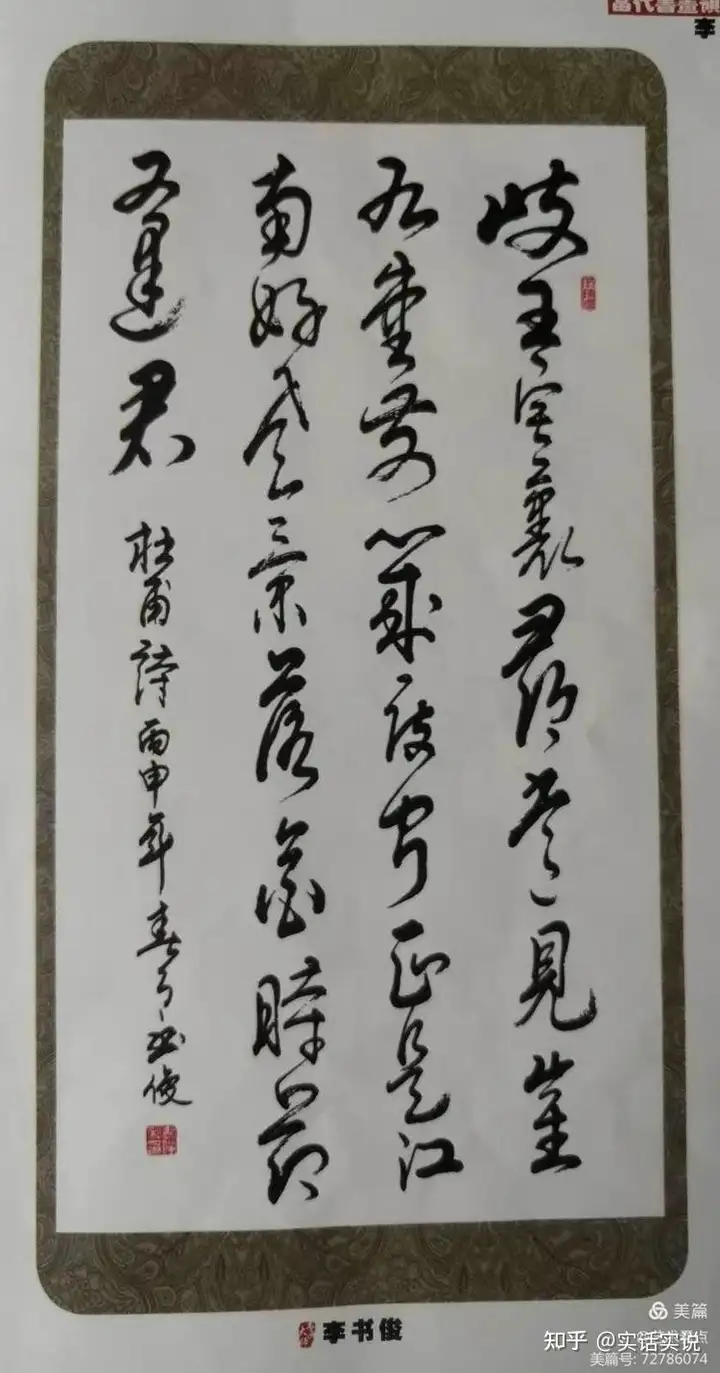 李
岐王宅裏尋常見崔
九堂前幾度聞正是江
南好風景落花時節
又逢君
杜甫詩丙申年春月書俊
李书俊
美篇
知乎 @实话实说
美篇号: 72786074